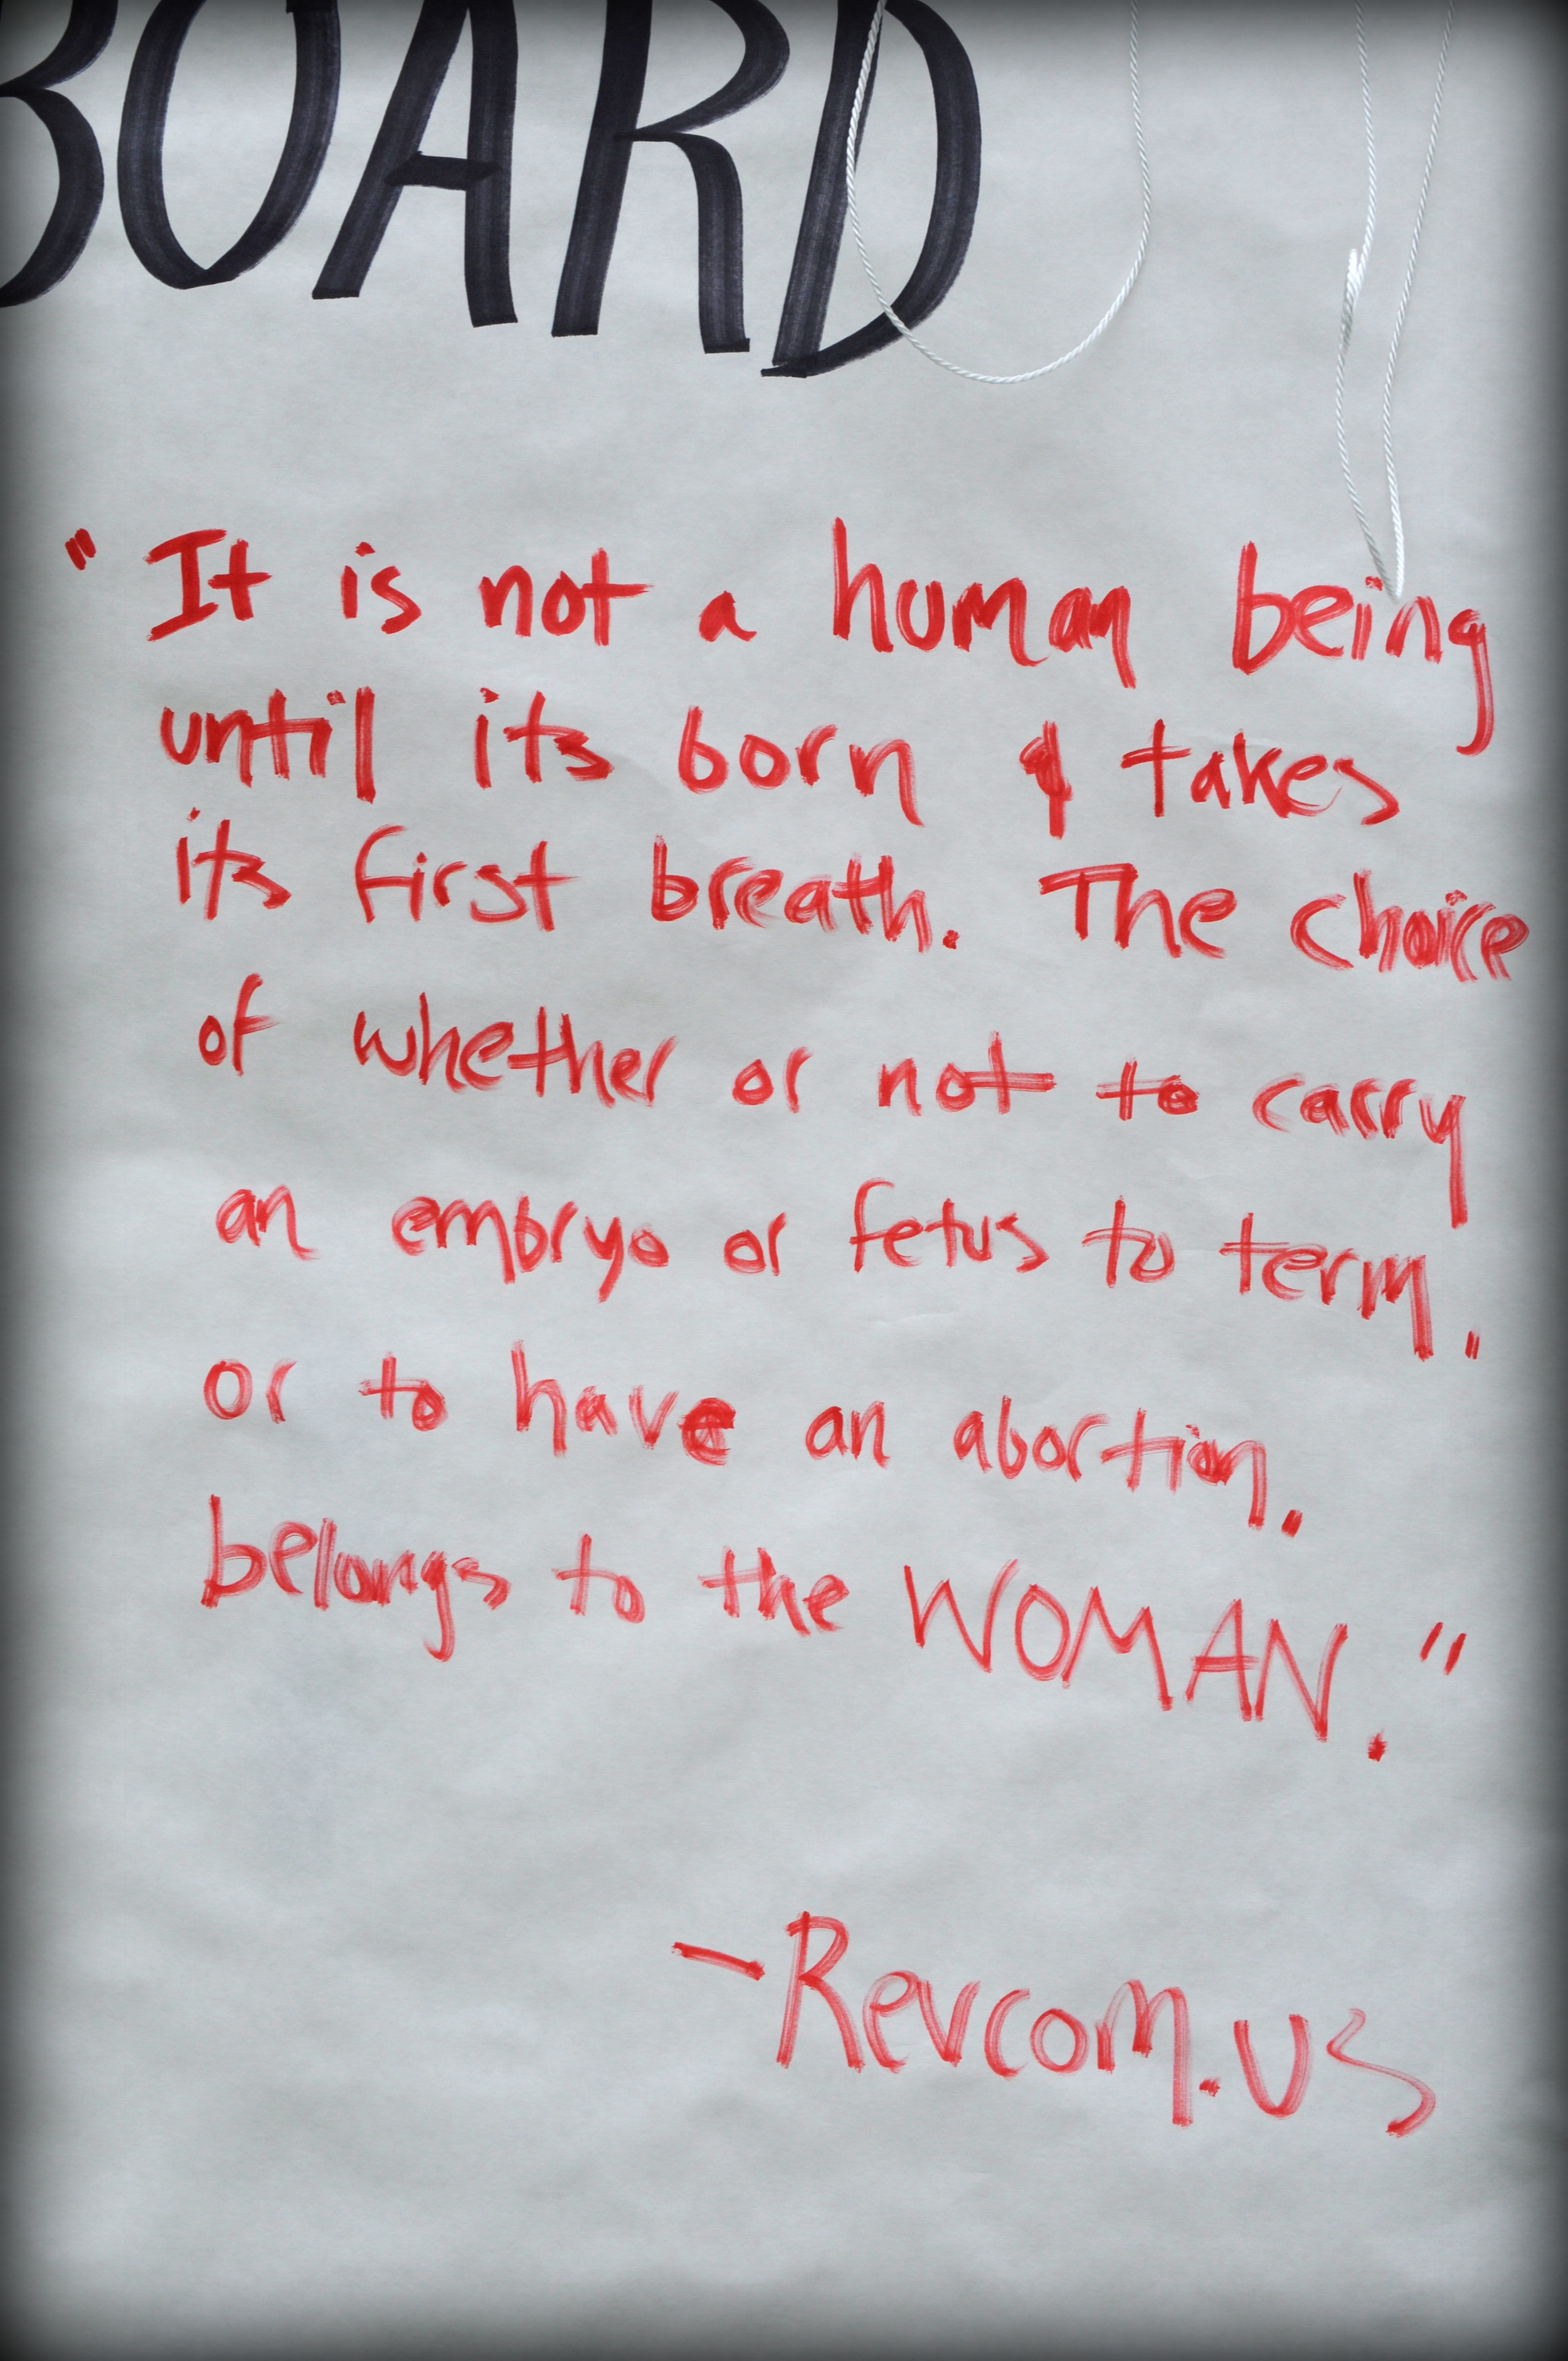 BOARD
"It is not a human being
until its born & takes
its first breath. The choice
of whether or not to carry
an embryo or fetus to term."
or to have an abortion.
belongs to the WOMAN."
-Revcom.us